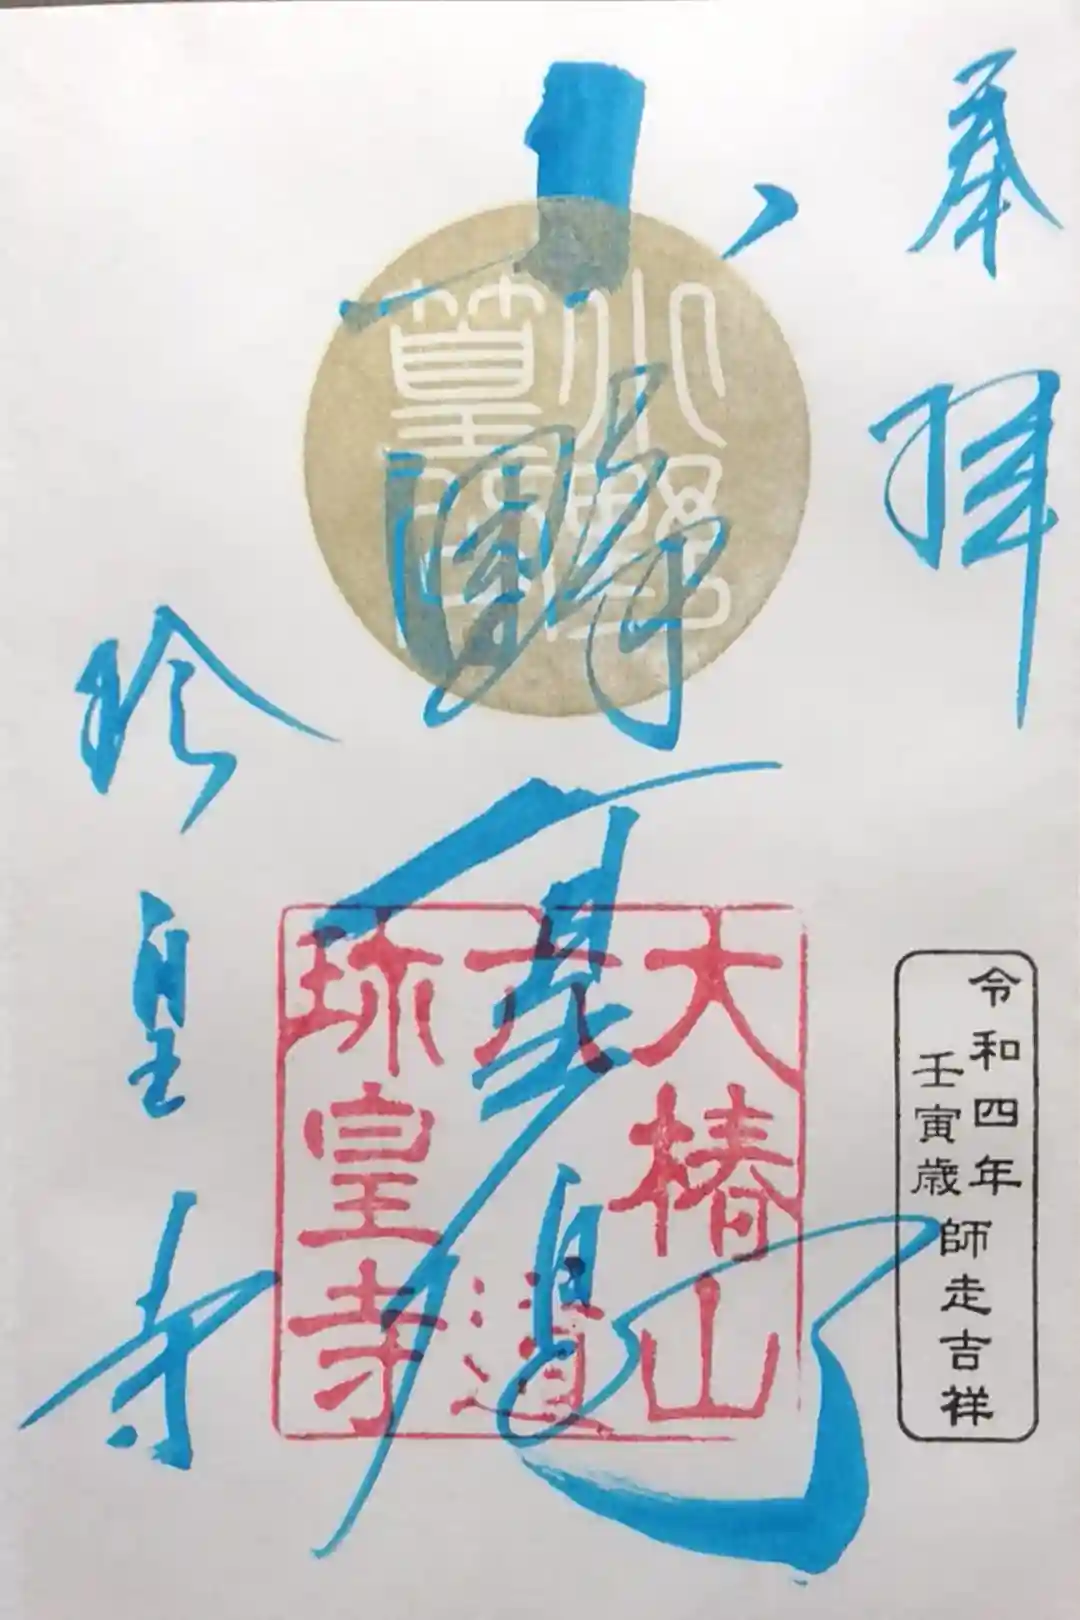 奉拝
珍皇寺
小野
大椿山
六道
珎皇寺
令和四年
壬寅歳
師走吉祥